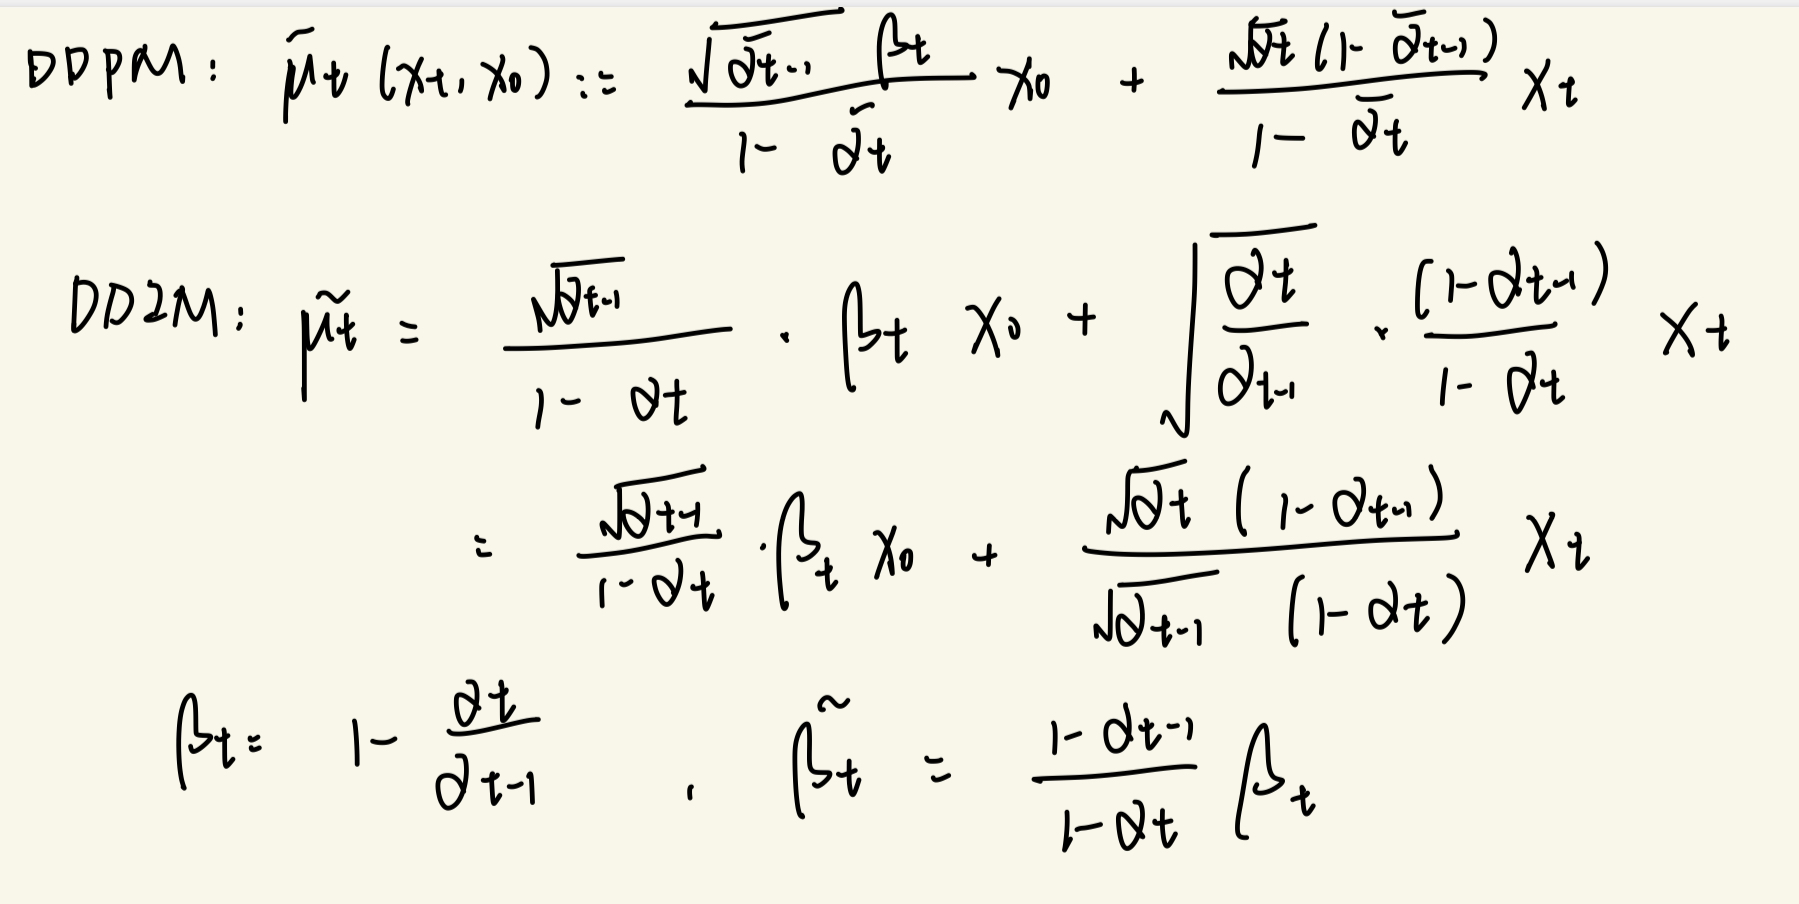 DDPM: μ̃t (xt, x0) := √ᾱt-1 βt / 1 - ᾱt x0 + √αt (1 - ᾱt-1) / 1 - ᾱt xt
DDIM: μ̃t = √αt-1 / 1 - αt · βt x0 + √(αt / αt-1) · (1 - αt-1) / 1 - αt xt
= √αt-1 / 1 - αt · βt x0 + √αt (1 - αt-1) / √αt-1 (1 - αt) xt
βt = 1 - αt / αt-1 , β̃t = 1 - αt-1 / 1 - αt βt